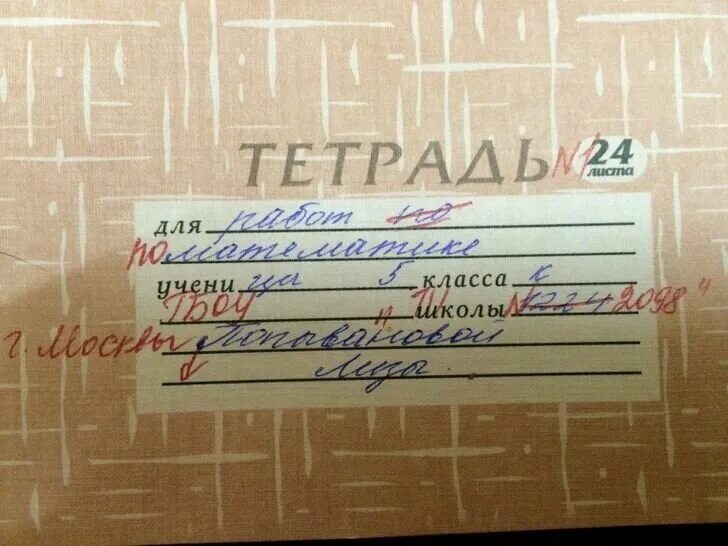 ТЕТРАДЬ №1 24 листа
для работ по
по математике
учени ца 5 класса К
ГБОУ "ГП школы № 2098"
г. Москвы Попывановой
Лизы.